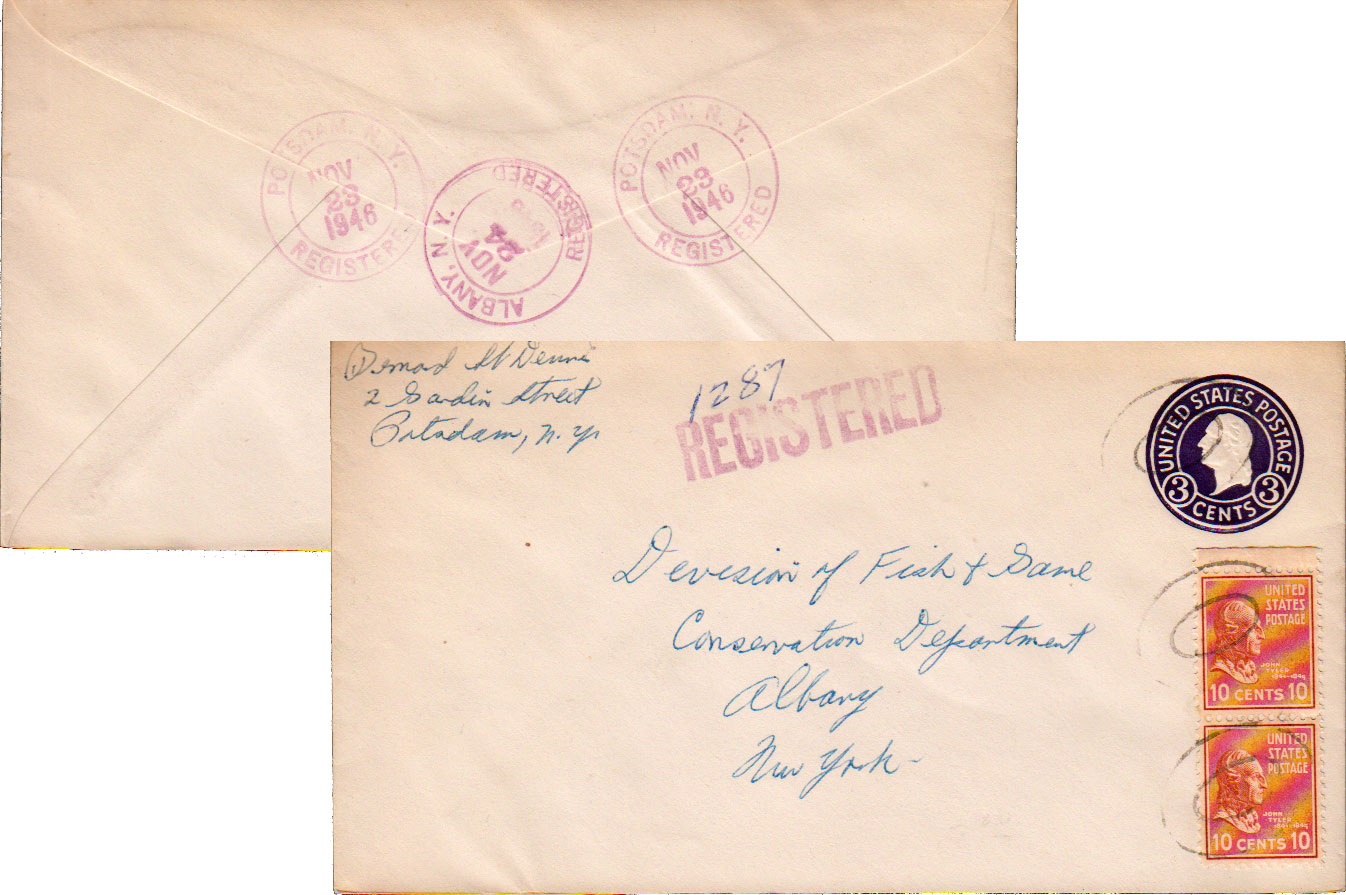 POTSDAM, N. Y.
NOV
23
1946
REGISTERED
ALBANY, N. Y.
NOV
24
REGISTERED
POTSDAM, N. Y.
NOV
23
1946
REGISTERED
St Denis
2 Street
Potsdam, N. Y.
1287
REGISTERED
UNITED STATES POSTAGE
3 3
CENTS
Devesion of Fish & Game
Conservation Department
Albany
New York
UNITED
STATES
POSTAGE
JOHN
TYLER
1841-1845
10 CENTS 10
UNITED
STATES
POSTAGE
JOHN
TYLER
1841-1845
10 CENTS 10